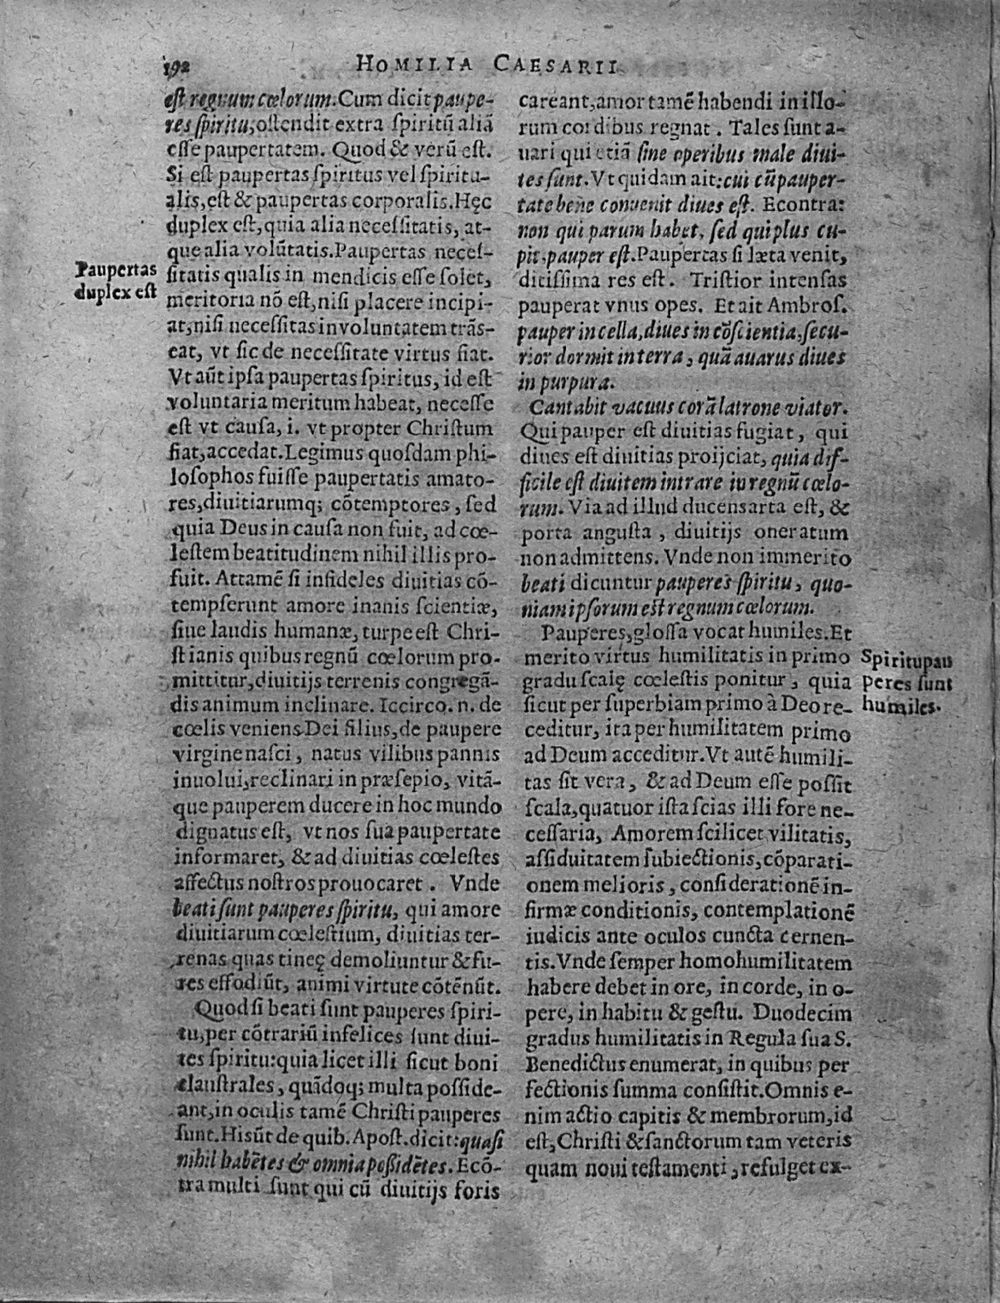 192
HOMILIA CAESARII
est regnum cœlorum. Cum dicit paupe-
res spiritu, ostendit extra spiritū aliā
esse paupertatem. Quod & verū est.
Si est paupertas spiritus vel spiritu-
alis, est & paupertas corporalis. Hęc
duplex est, quia alia necessitatis, at-
que alia volūtatis. Paupertas neces-
sitatis qualis in mendicis esse solet,
meritoria nō est, nisi placere incipi-
at, nisi necessitas in voluntatem trās-
eat, vt sic de necessitate virtus fiat.
Vt aūt ipsa paupertas spiritus, id est
voluntaria meritum habeat, necesse
est vt causa, i. vt propter Christum
fiat, accedat. Legimus quosdam phi-
losophos fuisse paupertatis amato-
res, diuitiarumq; cōtemptores, sed
quia Deus in causa non fuit, ad cœ-
lestem beatitudinem nihil illis pro-
fuit. Attamē si infideles diuitias cō-
tempserunt amore inanis scientiæ,
siue laudis humanæ, turpe est Chri-
stianis quibus regnū cœlorum pro-
mittitur, diuitijs terrenis congregā-
dis animum inclinare. Iccirco. n. de
cœlis veniens Dei filius, de paupere
virgine nasci, natus vilibus pannis
inuolui, reclinari in præsepio, vitā-
que pauperem ducere in hoc mundo
dignatus est, vt nos sua paupertate
informaret, & ad diuitias cœlestes
affectus nostros prouocaret. Vnde
beati sunt pauperes spiritu, qui amore
diuitiarum cœlestium, diuitias ter-
renas quas tineę demoliuntur & fu-
res effodiūt, animi virtute cōtēnūt.
Quod si beati sunt pauperes spiri-
tu, per cōtrariū infelices sunt diui-
tes spiritu: quia licet illi sicut boni
claustrales, quādoq; multa posside-
ant, in oculis tamē Christi pauperes
sunt. His ūt de quib. Apost. dicit: quasi
nihil habētes & omnia possidētes. Ecō-
tra multi sunt qui cū diuitijs foris
Paupertas
duplex est
careant, amor tamē habendi in illo-
rum cordibus regnat. Tales sunt a-
uari qui etiā sine operibus male diui-
tes sunt. Vt quidam ait: cui cū pauper-
tate bene conuenit diues est. Econtra:
non qui parum habet, sed qui plus cu-
pit, pauper est. Paupertas si læta venit,
ditissima res est. Tristior intensas
pauperat vnus opes. Et ait Ambros.
pauper in cella, diues in cōscientia, secu-
rior dormit in terra, quā auarus diues
in purpura.
Cantabit vacuus corā latrone viator.
Qui pauper est diuitias fugiat, qui
diues est diuitias proijciat, quia dif-
ficile est diuitem intrare in regnū cœlo-
rum. Via ad illud ducens arta est, &
porta angusta, diuitijs oneratum
non admittens. Vnde non immerito
beati dicuntur pauperes spiritu, quo-
niam ipsorum est regnum cœlorum.
Pauperes, glossa vocat humiles. Et
merito virtus humilitatis in primo
gradu scalę cœlestis ponitur, quia
sicut per superbiam primo à Deo re-
ceditur, ita per humilitatem primo
ad Deum acceditur. Vt autē humili-
tas sit vera, & ad Deum esse possit
scala, quatuor ista scias illi fore ne-
cessaria, Amorem scilicet vilitatis,
assiduitatem subiectionis, cōparati-
onem melioris, considerationē in-
firmæ conditionis, contemplationē
iudicis ante oculos cuncta cernen-
tis. Vnde semper homo humilitatem
habere debet in ore, in corde, in o-
pere, in habitu & gestu. Duodecim
gradus humilitatis in Regula sua S.
Benedictus enumerat, in quibus per
fectionis summa consistit. Omnis e-
nim actio capitis & membrorum, id
est, Christi & sanctorum tam veteris
quam noui testamenti, refulget ex-
Spiritu pau
peres sunt
humiles.